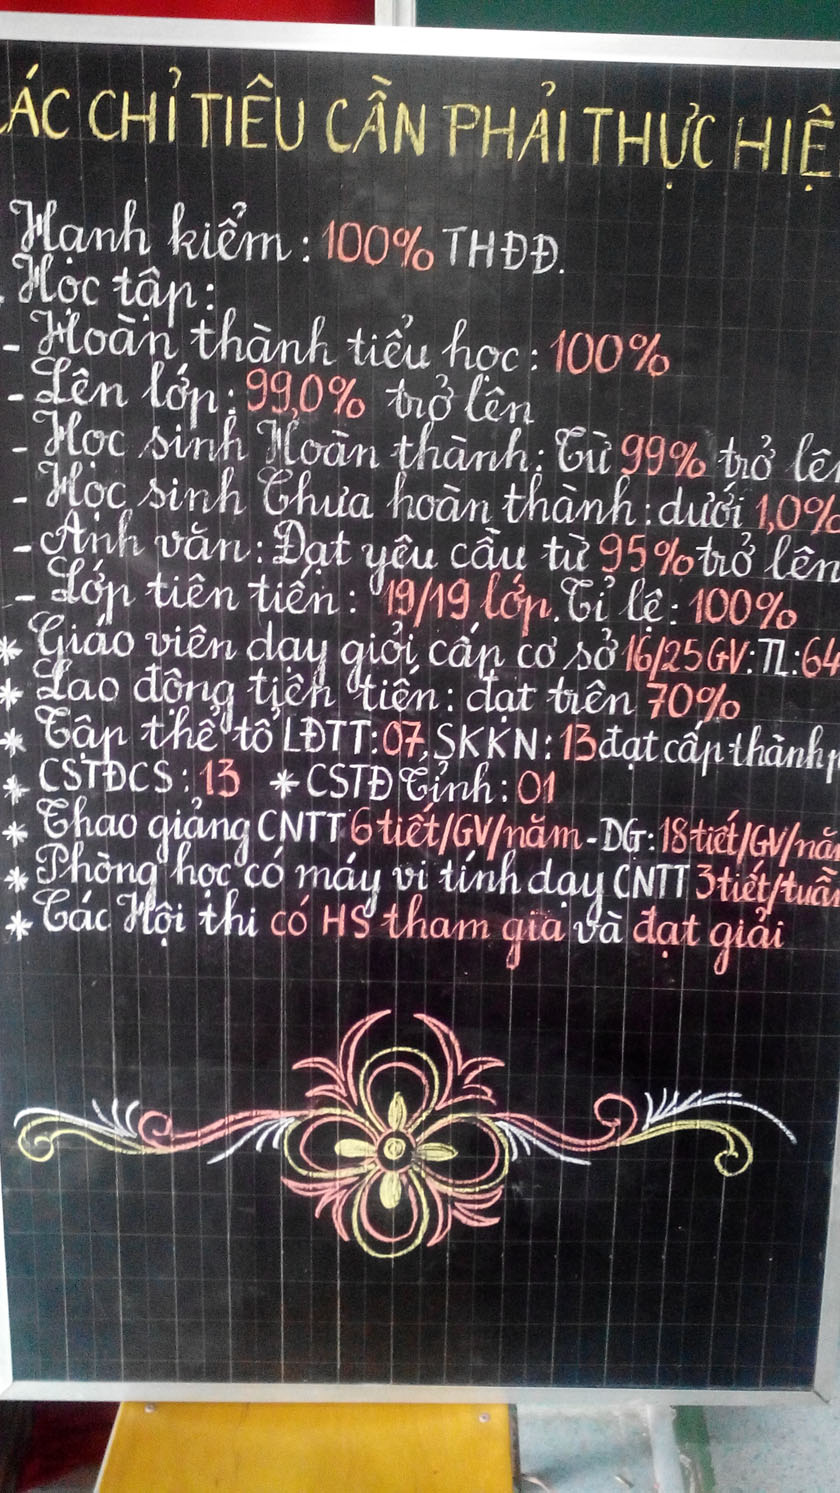 ÁC CHỈ TIÊU CẦN PHẢI THỰC HIỆ
Hạnh kiểm: 100% THĐĐ.
Học tập:
- Hoàn thành tiểu học: 100%
- Lên lớp: 99,0% trở lên
- Học sinh Hoàn thành: Từ 99% trở lê
- Học sinh Chưa hoàn thành: dưới 1,0%
- Anh văn: Đạt yêu cầu từ 95% trở lên
- Lớp tiên tiến: 19/19 lớp. Tỉ lệ: 100%
* Giáo viên dạy giỏi cấp cơ sở 16/25 GV: TL: 64
* Lao động tiên tiến: đạt trên 70%
* Tập thể tổ LĐTT: 07, SKKN: 13 đạt cấp thành
* CSTĐCS: 13 * CSTĐ Tỉnh: 01
* Thao giảng CNTT 6 tiết/GV/năm - DG: 18 tiết/GV/nă
* Phòng học có máy vi tính dạy CNTT 3 tiết/tuần
* Các Hội thi có HS tham gia và đạt giải